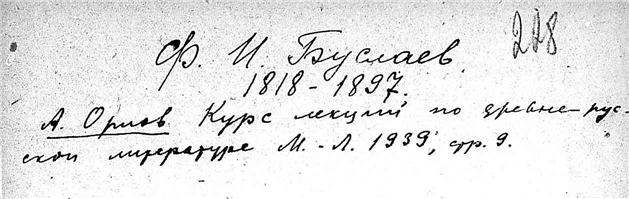 Ф. И. Буслаев 228
1818-1897.
А. Орлов Курс лекций по древне-рус-
ской литературе М.-Л. 1939, стр. 9.